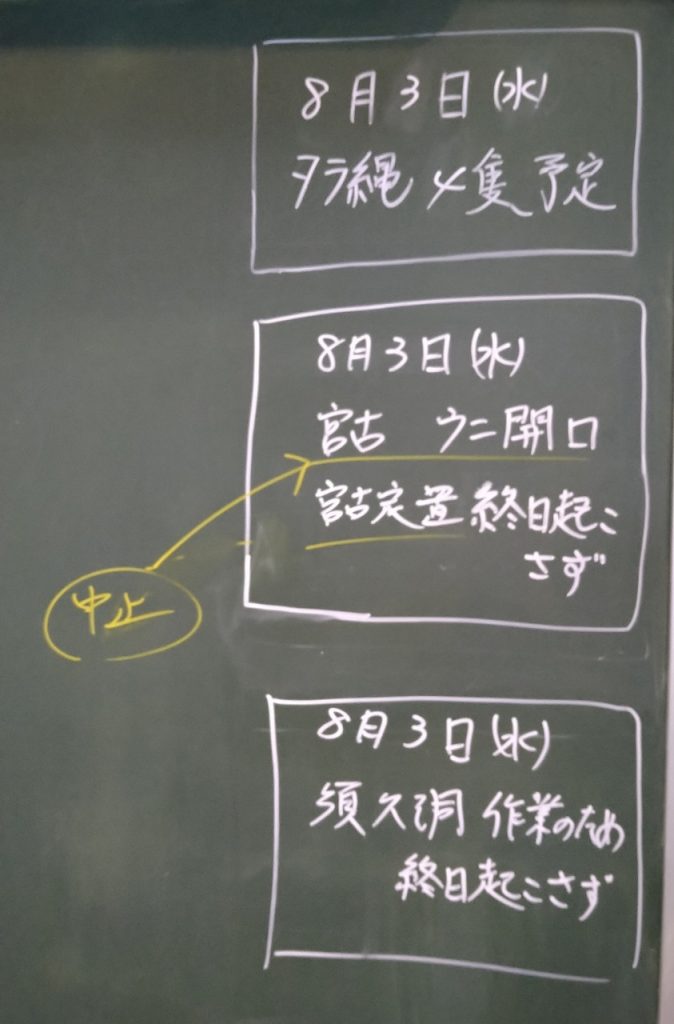 8月3日(水)
タラ縄 4隻予定
8月3日(水)
宮古 ウニ開口
宮古定置 終日起こ
さず
中止
8月3日(水)
須久洞 作業のため
終日起こさず